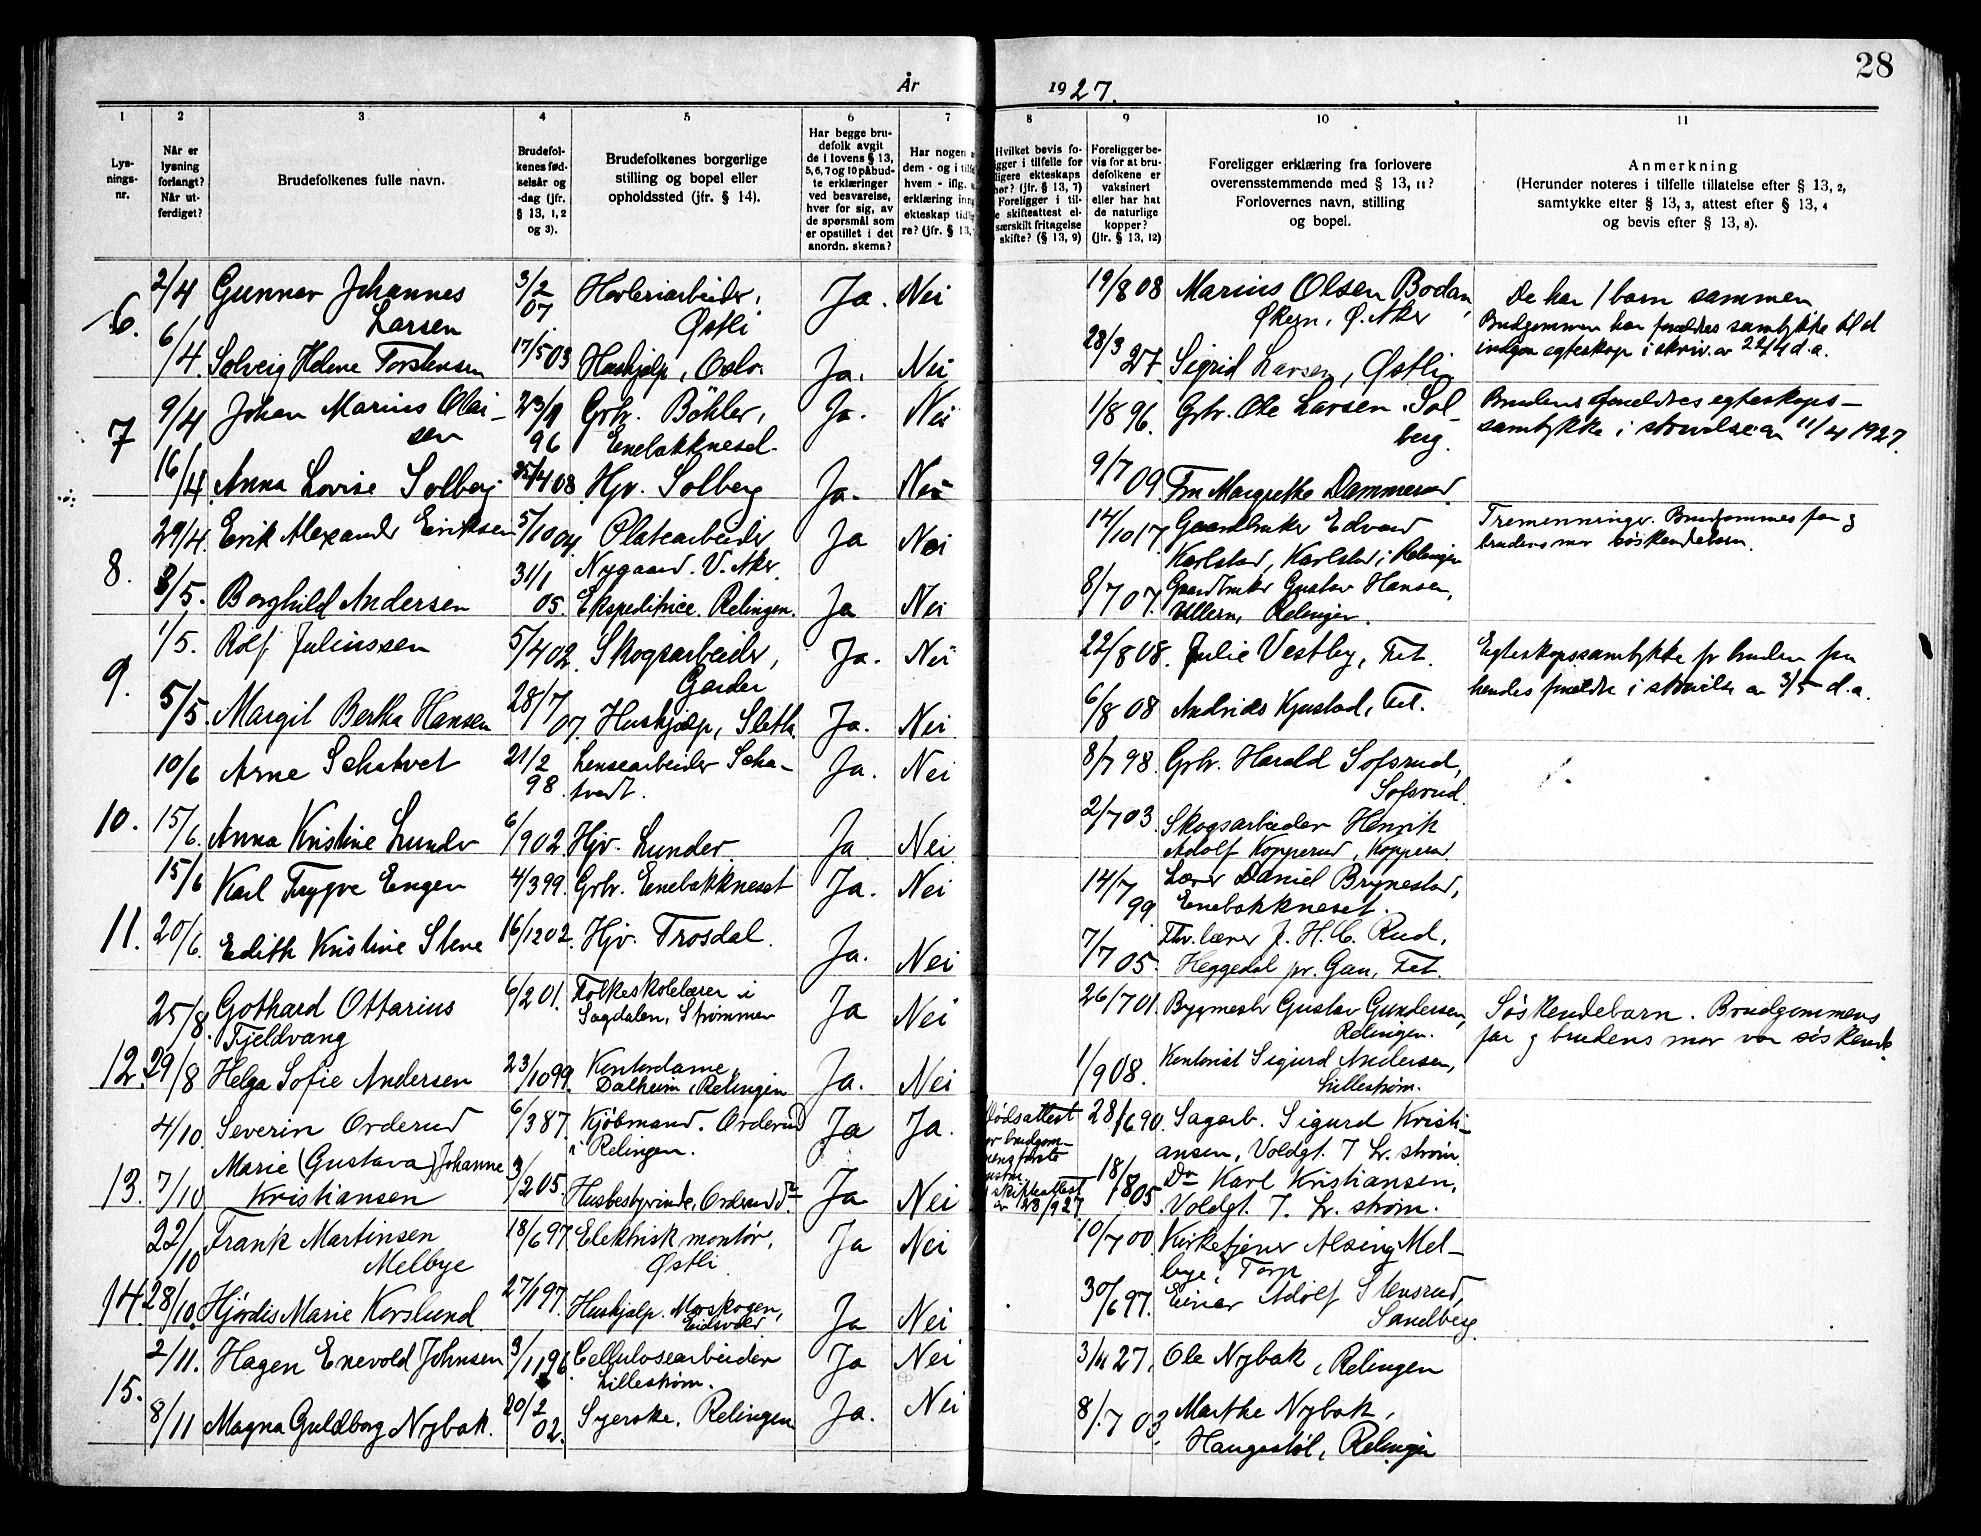 28
År 1927.
1 2 3 4 5 6 7 8 9 10 11
Lys-
nings-
nr.
Når er
lysning
forlangt?
Når ut-
ferdiget?
Brudefolkenes fulle navn.
Brudefol-
kenes fød-
selsår og
-dag (jfr.
§ 13, 1, 2
og 3).
Brudefolkenes borgerlige
stilling og bopel eller
opholdssted (jfr. § 14).
Har begge bru-
defolk avgit
de i lovens § 13,
5, 6, 7 og 10 påbud-
te erklæringer
ved besvarelse,
hver for sig, av
de spørsmål som
er opstillet i det
anordn. skema?
Har nogen
dem - og i tilf
hvem - iflg.
erklæring inn
ekteskap tidl
re? (jfr. § 13,
Hvilket bevis fo-
gger i tilfelle for
ligere ekteskaps
hør? (jfr. § 13, 7)
Foreligger i til-
e skifteattest el-
særskilt fritagelse
skifte? (§ 13, 9)
Foreligger be-
vis for at bru-
defolkene er
vaksinert
eller har hat
de naturlige
kopper?
(jfr. § 13, 12)
Foreligger erklæring fra forlovere
overensstemmende med § 13, 11?
Forlovernes navn, stilling
og bopel.
Anmerkning
(Herunder noteres i tilfelle tillatelse efter § 13, 2,
samtykke efter § 13, 3, attest efter § 13, 4
og bevis efter § 13, 8).
6. 2/4 Gunnar Johannes Larsen 3/2 07 Høvleriarbeider, Østli Ja. Nei 19/8 08 Marius Olsen Bodan, Økern, Ø. Aker
De har 1 barn sammen
Brudgommen har forældres samtykke til at
indgaa egteskap i skriv. av 22/4 d.a.
6/4. Solveig Helene Torstensen 17/5 03 Hushjelp, Oslo. Ja. Nei 28/3 27. Sigrid Larsen, Østli
7 9/4 Johan Marius Olai-
sen 23/11 96 Grbr. Böhler, Enebakkneset. Ja. Nei 1/8 96. Grbr. Ole Larsen Sol-
berg.
Brudens forældres egteskaps-
samtykke i skrivelse av 11/4 1927.
16/4. Anna Lovise Solberg 25/4 08. Hjv. Solberg Ja. Nei 9/7 09. Fru Margrethe Dammerud
8. 29/4. Erik Alexander Eriksen 5/10 04 Platearbeider Nygaard. V. Aker. Ja Nei 14/10 17. Gaardbruker Edvard
Karlstad, Karlstad i Rælingen
Tremenninger. Brudgommens far og
brudens mor söskendebarn.
3/5. Borghild Andersen 31/1 05. Ekspeditrice. Rælingen. Ja Nei 8/7 07. Gaardbruker Gustav Hansen,
Ullern, Rælingen.
9. 1/5. Rolf Juliussen 5/4 02. Skogsarbeider, Garder Ja. Nei 22/8 08. Julie Vestby, Fet.
Egteskapssamtykke for bruden fra
hendes forældre i skrivelse av 3/5 d.a.
5/5. Margit Bertha Hansen 28/7 07. Huskjælp, Sletta Ja. Nei. 6/8 08 Andreas Kjustad, Fet.
10. 10/6 Arne Schatvet 21/2 98. Lensearbeider Scha-
tvedt. Ja. Nei 8/7 98. Grbr. Harald Sofsrud,
Sofsrud.
15/6. Anna Kristine Lunder 6/9 02. Hjv. Lunder. Ja. Nei. 2/7 03. Skogsarbeider Henrik
Adolf Kopperud, Kopperud.
11. 15/6 Karl Trygve Engen 4/3 99. Grbr. Enebakkneset Ja. Nei 14/7 99 Lærer Daniel Brynestad,
Enebakkneset.
20/6. Edith Kristine Stene 16/12 02. Hjv. Trosdal. Ja. Nei 7/7 05. Fhv. lærer J. H. C. Rud,
Heggedal pr. Gan, Fet.
12. 25/8. Gothard Ottarius
Fjeldvang 6/2 01. Folkeskolelærer i
Sagdalen, Strømmen Ja Nei 26/7 01. Bygmester Gustav Gundersen,
Rælingen.
Söskendebarn. Brudgommens
far og brudens mor var söskende.
29/8 Helga Sofie Andersen 23/10 99. Kontordame,
Dalheim i Rælingen Ja. Nei 1/9 08. Kontorist Sigurd Andersen,
Lillestrøm.
13. 4/10. Severin Orderud 6/3 87. Kjöbmand. Orderud
i Relingen. Ja Ja. Dødsattest
for brudgom-
mens første
hustru
skifteattest
av 28/9 27. 28/6 90. Sagarb. Sigurd Kristi-
ansen, Voldgt. 7 L. strøm.
7/10 Marie (Gustava) Johanne
Kristiansen 3/2 05. Husbestyrinde, Orderud Ja Nei 18/8 05. Do Karl Kristiansen,
Voldgt. 7. L. strøm.
14. 22/10 Frank Martinsen
Melbye 18/6 97. Elektrisk montör,
Østli Ja Nei 10/7 00. Kirketjener Alsing Mel-
bye, Torp
28/10. Hjördis Marie Korslund. 27/1 97. Huskjelp. Morskogen,
Eidsvold Ja Nei 30/6 97. Einar Adolf Stensrud,
Sandberg.
15. 2/11. Hagen Enevold Johnsen 3/11 96. Cellulosearbeider
Lillestrøm. Ja Nei 3/11 27, Ole Nybak, Relingen
8/11 Magna Guldborg Nybak. 20/2 02. Syerske, Relingen Ja. Nei 8/7 03. Marthe Nybak,
Haugestøl, Relingen